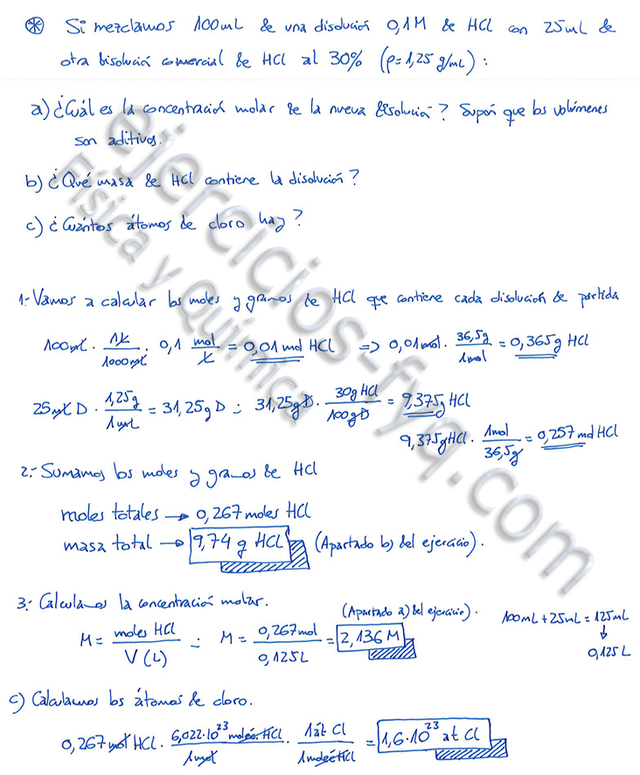 ⊛ Si mezclamos 100mL de una disolución 0,1M de HCl con 25mL de
otra disolución comercial de HCl al 30% (ρ=1,25 g/mL) :
a) ¿Cuál es la concentración molar de la nueva disolución? Supón que los volúmenes
son aditivos.
b) ¿Qué masa de HCl contiene la disolución?
c) ¿Cuántos átomos de cloro hay?
1.- Vamos a calcular los moles y gramos de HCl que contiene cada disolución de partida
100mL · 1L/1000mL · 0,1 mol/L = 0,01 mol HCl ⇒ 0,01mol · 36,5g/1mol = 0,365g HCl
25mL D · 1,25g/1mL = 31,25g D ; 31,25gD · 30g HCl/100gD = 9,375g HCl
9,375gHCl · 1mol/36,5g = 0,257 mol HCl
2.- Sumamos los moles y gramos de HCl
moles totales → 0,267 moles HCl
masa total → 9,74 g HCl (Apartado b) del ejercicio).
3.- Calculamos la concentración molar.
(Apartado a) del ejercicio).
M = moles HCl/V(L) ; M = 0,267mol/0,125L = 2,136 M
100mL + 25mL = 125mL
↓
0,125L
c) Calculamos los átomos de cloro.
0,267 mol HCl · 6,022·10²³ moléc HCl/1mol · 1 át Cl/1moléc HCl = 1,6·10²³ at Cl
ejercicios-fyq.com
Física y Química